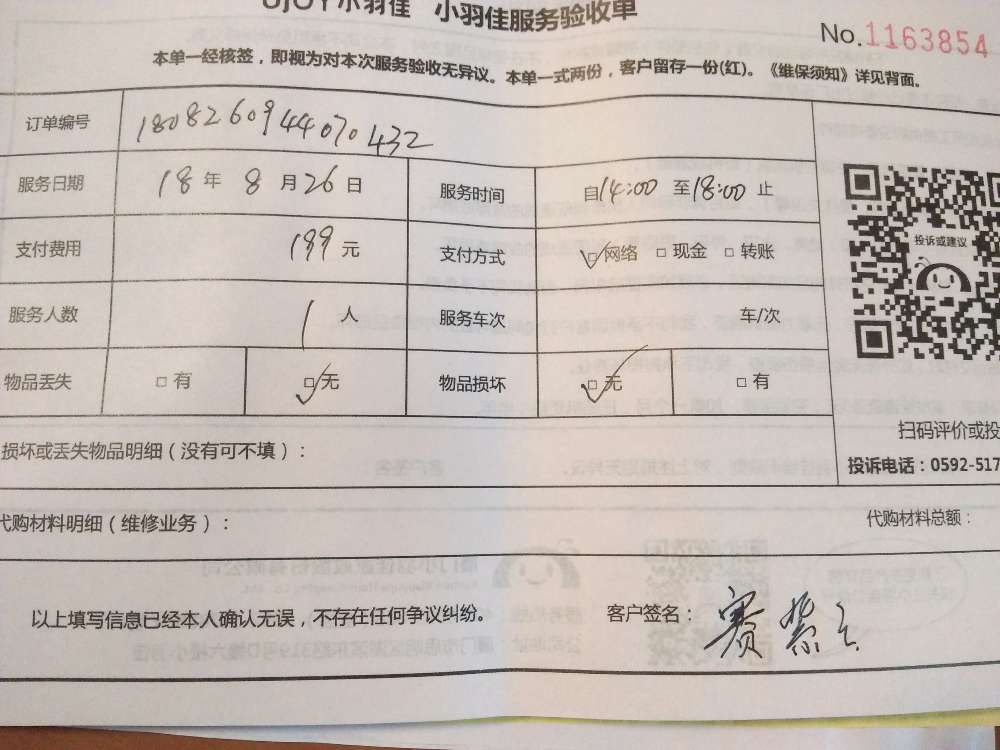 UJOY小羽佳 小羽佳服务验收单
No.1163854
本单一经核签，即视为对本次服务验收无异议。本单一式两份，客户留存一份(红)。《维保须知》详见背面。
订单编号 180826094407 0432
服务日期 18 年 8 月 26 日 服务时间 自 14:00 至 18:00 止
支付费用 199 元 支付方式 ☑网络 □ 现金 □ 转账
投诉或建议
服务人数 1 人 服务车次 车/次
物品丢失 □ 有 ☑无 物品损坏 ☑无 □ 有
扫码评价或投
损坏或丢失物品明细（没有可不填）：
投诉电话：0592-517
代购材料明细（维修业务）：
代购材料总额：
以上填写信息已经本人确认无误，不存在任何争议纠纷。 客户签名： 赛